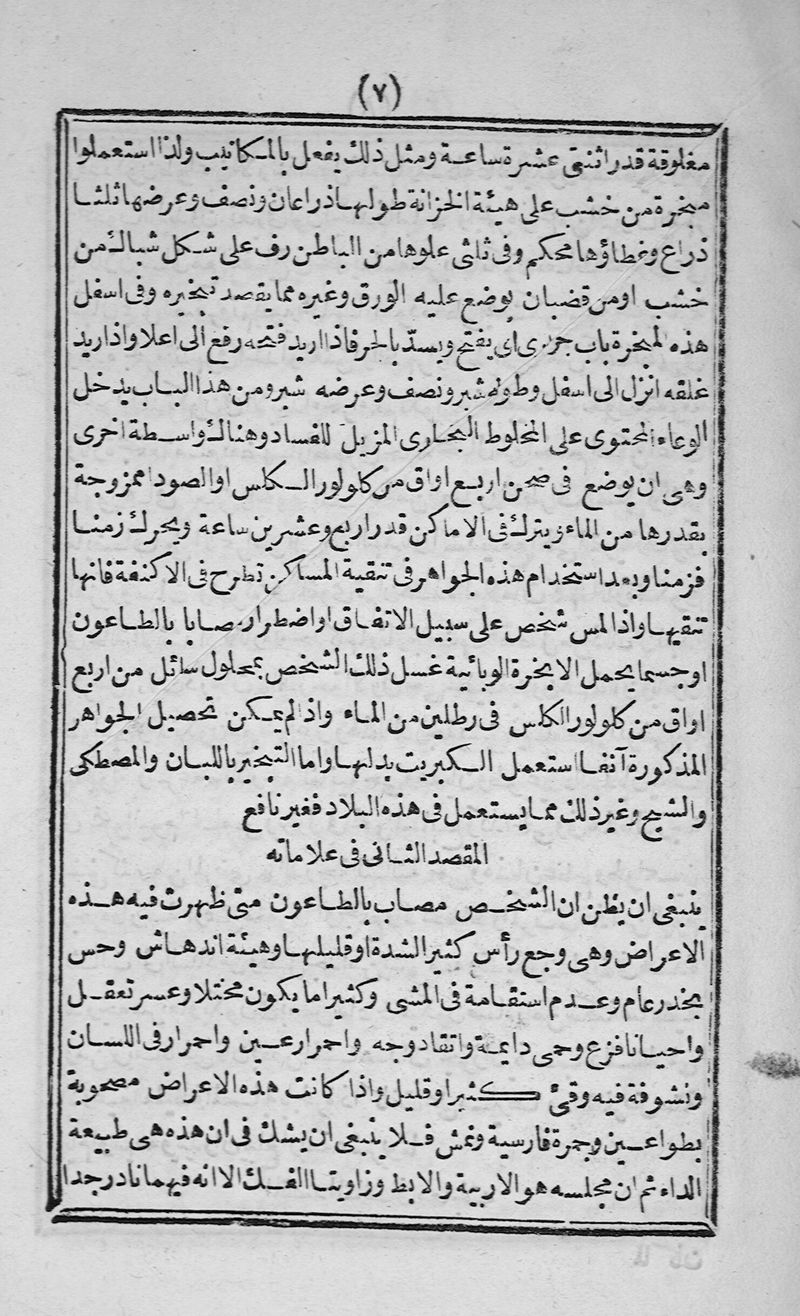 (٧)
مغلوقة قدر اثنتى عشرة ساعة ومثل ذلك يفعل بالمكاتيب ولذا استعملوا
مبخرة من خشب على هيئة الخزانة طولها ذراعان ونصف وعرضها ثلثا
ذراع وغطاؤها محكم وفى ثلثى علوها من الباطن رف على شكل شباك من
خشب اومن قضبان يوضع عليه الورق وغيره مما يقصد تبخيره وفى اسفل
هذه المبخرة باب جررى اى يفتح ويسد بالجر فاذا اريد فتحه رفع الى اعلا واذ اريد
غلقه انزل الى اسفل وطوله شبر ونصف وعرضه شبر ومن هذا الباب يدخل
الوعاء المحتوى على المخلوط البخارى المزيل للفساد وهناك واسطة اخرى
وهى ان يوضع فى صحن اربع اواق من كلولور الكلس او الصودا ممزوجة
بقدرها من الماء ويترك فى الاماكن قدر اربع وعشرين ساعة ويحرك زمنا
فزمنا وبعد استخدام هذه الجواهر فى تنقية المساكن تطرح فى الاكنفة فانها
تنقيها واذا لمس شخص على سبيل الاتفاق او اضطرار مصابا بالطاعون
اوجسما يحمل الابخرة الوبائية غسل ذلك الشخص بمحلول سائل من اربع
اواق من كلولور الكلس فى رطلين من الماء واذ لم يمكن تحصيل الجواهر
المذكورة آنفا استعمل الكبريت بدلها واما التبخير باللبان والمصطكى
والشيح وغير ذلك مما يستعمل فى هذه البلاد فغير نافع
المقصد الثانى فى علاماته
ينبغى ان يظن ان الشخص مصاب بالطاعون متى ظهرت فيه هذه
الاعراض وهى وجع رأس كثير الشدة اوقليلها وهيئة اندهاش وحس
بخدر عام وعدم استقامة فى المشى وكثيرا ما يكون مختلا وعسر تعقل
واحيانا فزع وحمى دايمة واتقاد وجه واحمرار عين واحمرار فى اللسان
ونشوفة فيه وقئ كثير اوقليل واذا كانت هذه الاعراض مصحوبة
بطواعين وجمرة فارسية ونمش فلا ينبغى ان يشك فى ان هذه هى طبيعة
الداء ثم ان مجلسه هو الاربية والابط وزاويتا الفك الا انه فيهما نادر جدا